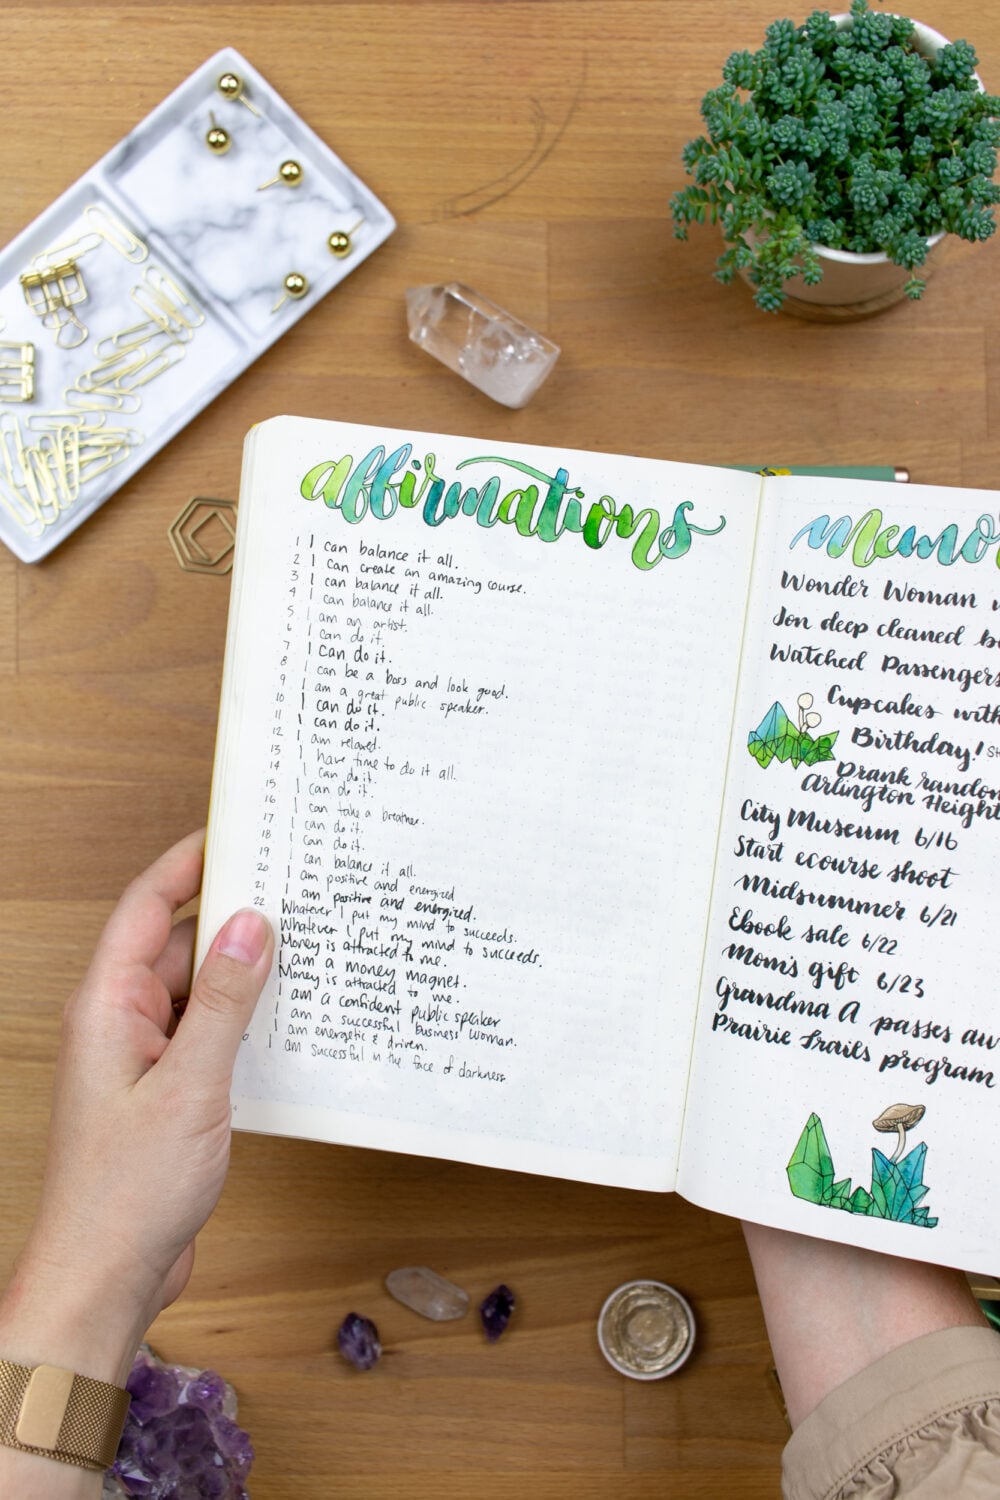 affirmations
1 I can balance it all.
2 I can create an amazing course.
3 I can balance it all.
4 I can balance it all.
5 I am an artist.
6 I can do it.
7 I can do it.
8 I can be a boss and look good.
9 I am a great public speaker.
10 I can do it.
11 I can do it.
12 I am relaxed.
13 I have time to do it all.
14 I can do it.
15 I can do it.
16 I can take a breather.
17 I can do it.
18 I can do it.
19 I can balance it all.
20 I am positive and energized
21 I am positive and energized.
22 Whatever I put my mind to succeeds.
Whatever I put my mind to succeeds.
Money is attracted to me.
I am a money magnet.
Money is attracted to me.
I am a confident public speaker
I am a successful business woman.
I am energetic & driven.
0 I am successful in the face of darkness
Memo
Wonder Woman
Jon deep cleaned
Watched Passengers
Cupcakes with
Birthday! St
Drank random
Arlington Height
City Museum 6/16
Start ecourse shoot
Midsummer 6/21
Ebook sale 6/22
Mom's gift 6/23
Grandma A passes aw
Prairie Trails program